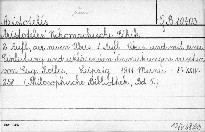 Aristoteles
I J B 10403
Aristoteles' Nikomachische Ethik.
2. Aufl. der neuen Übers. 1. Aufl. Übers. und mit einer
Einleitung und erklärenden Anmerkungen versehen
von Eug. Rolfes. Leipzig 1911 Meiner 8° XXIV,
(Philosophische Bibliothek, Bd. 5.)